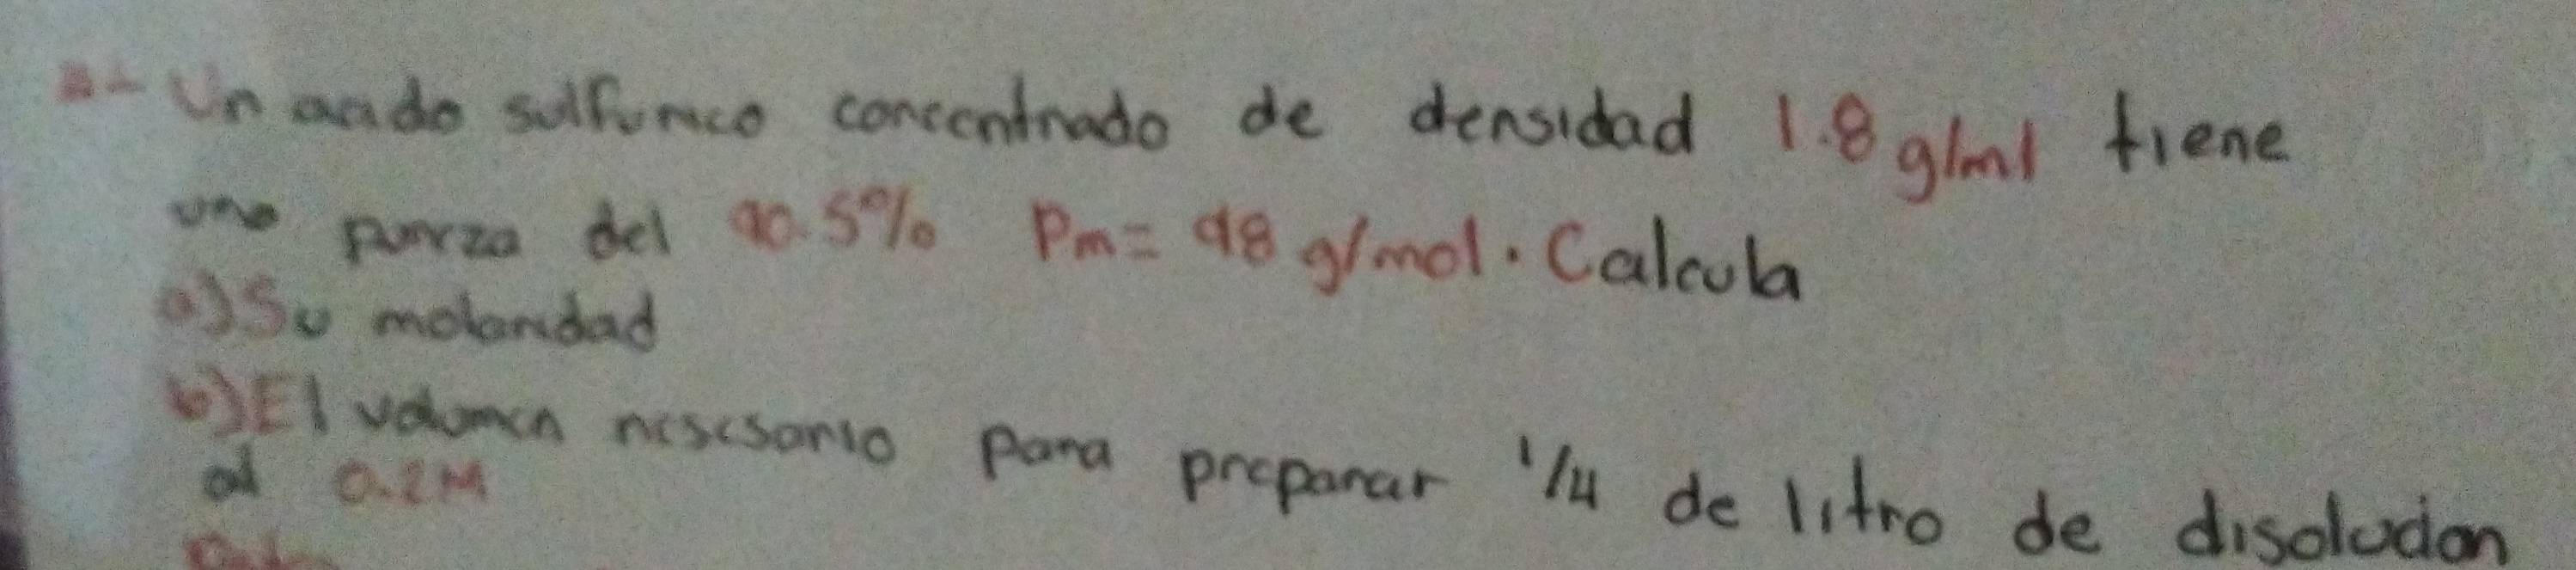 2.- Un acido sulfurico concentrado de densidad 1.8 g/ml tiene
una pureza del 90.5% Pm= 98 g/mol. Calcula
a) Su molaridad
b) El volumen nescesario para preparar 1/4 de litro de disolucion
al 0.2M